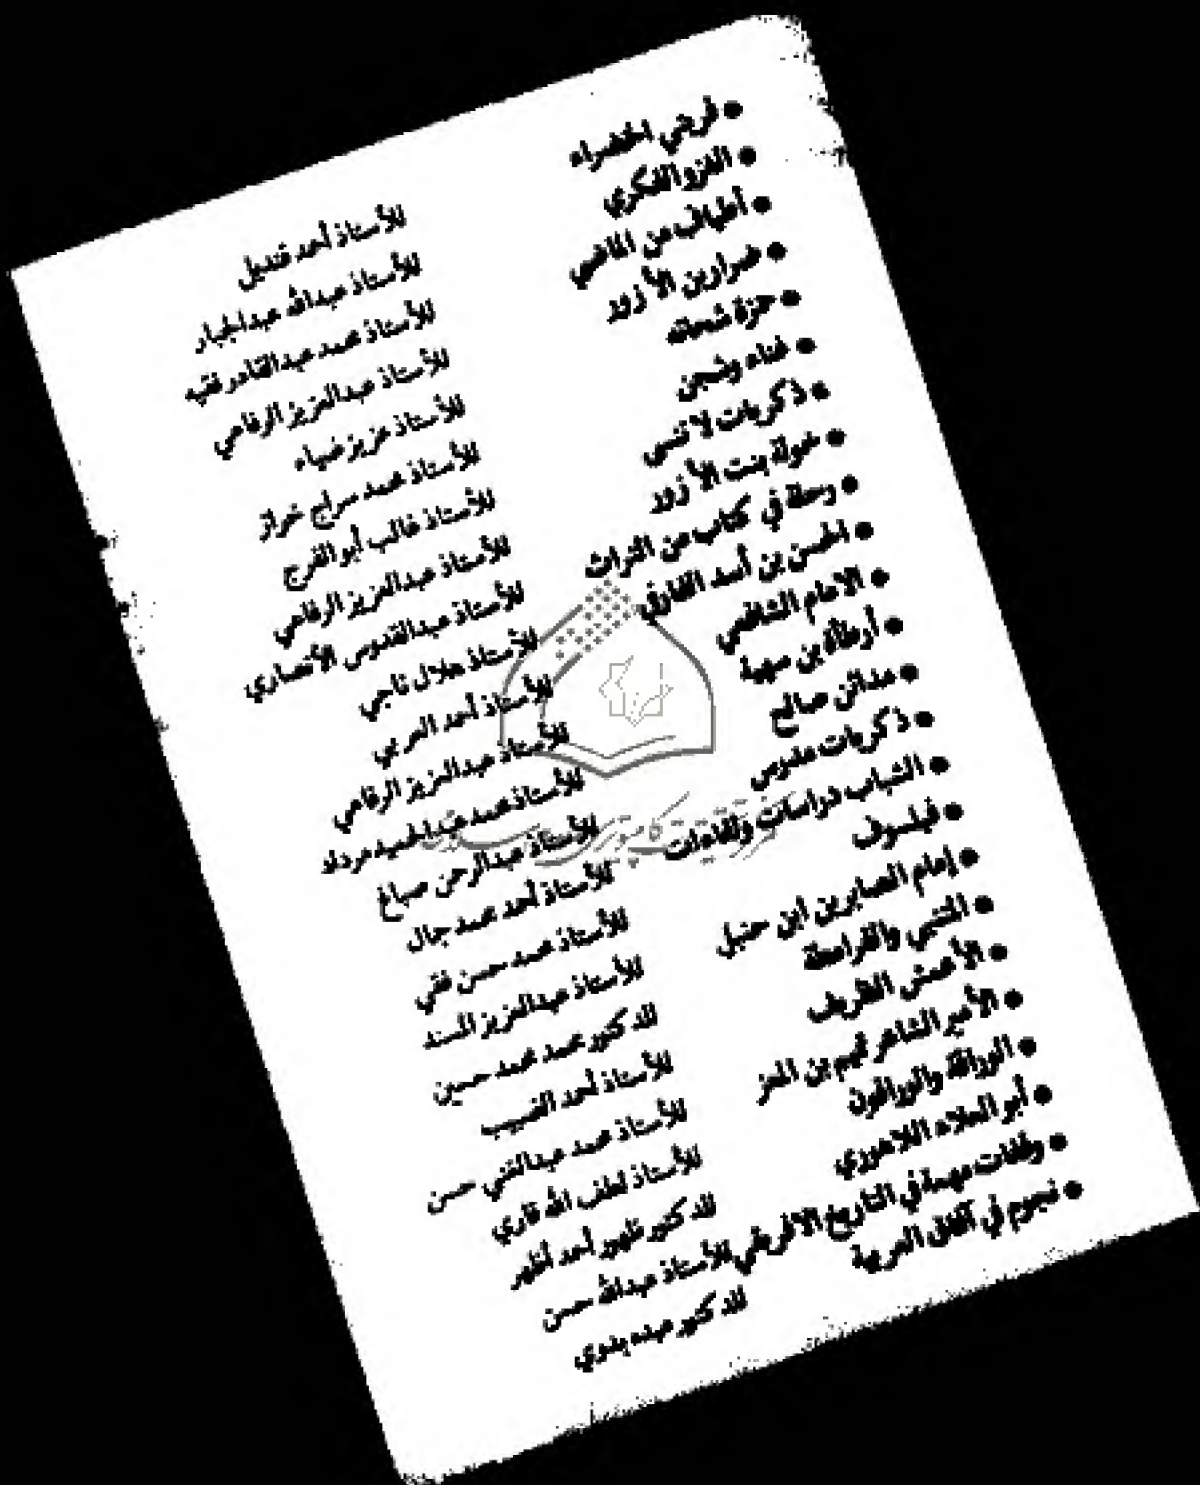 ● قريتي الخضراء للأستاذ أحمد قنديل
● الغزو الفكري للأستاذ عبدالله عبدالجبار
● أطياف من الماضي للأستاذ محمد عبدالقادر فقيه
● ضرار بن الأزور للأستاذ عبدالعزيز الرفاعي
● حمزة شحاته للأستاذ عزيز ضياء
● غناء وشجن للأستاذ محمد سراج خراز
● ذكريات لا تنسى للأستاذ غالب أبو الفرج
● خولة بنت الأزور للأستاذ عبدالعزيز الرفاعي
● رحلة في كتاب من التراث للأستاذ عبدالقدوس الأنصاري
● الحسن بن أسد الفارقي للأستاذ هلال ناجي
● الامام الشافعي للأستاذ أحمد العربي
● أرطأة بن سهية للأستاذ عبدالعزيز الرفاعي
● مدائن صالح للأستاذ محمد عبدالحميد مرداد
● ذكريات مدرس للأستاذ عبدالرحمن صباغ
● الشباب دراسات ولقاءات للأستاذ أحمد محمد جمال
● فيلسوف للأستاذ محمد حسن فقي
● إمام الصابرين ابن حنبل للأستاذ عبدالعزيز المسند
● المتنبي والقرامطة للدكتور محمد محمد حسين
● الأعمش الظريف للأستاذ أحمد الضبيب
● الأمير الشاعر تميم بن المعز للأستاذ محمد عبدالغني حسن
● الوراقة والوراقون للأستاذ لطف الله قاري
● أبو العلاء اللاهوري للدكتور ظهور أحمد أظهر
● وقفات مهمة في التاريخ الافريقي للأستاذ عبدالله حسن
● نجوم في آفاق العربية للدكتور عبده بدوي